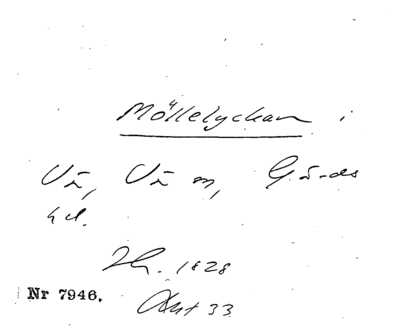 Möllelyckan i
Vä, Vä sn, Gärds
hd.
Sk. 1828
Akt 33
Nr 7946.